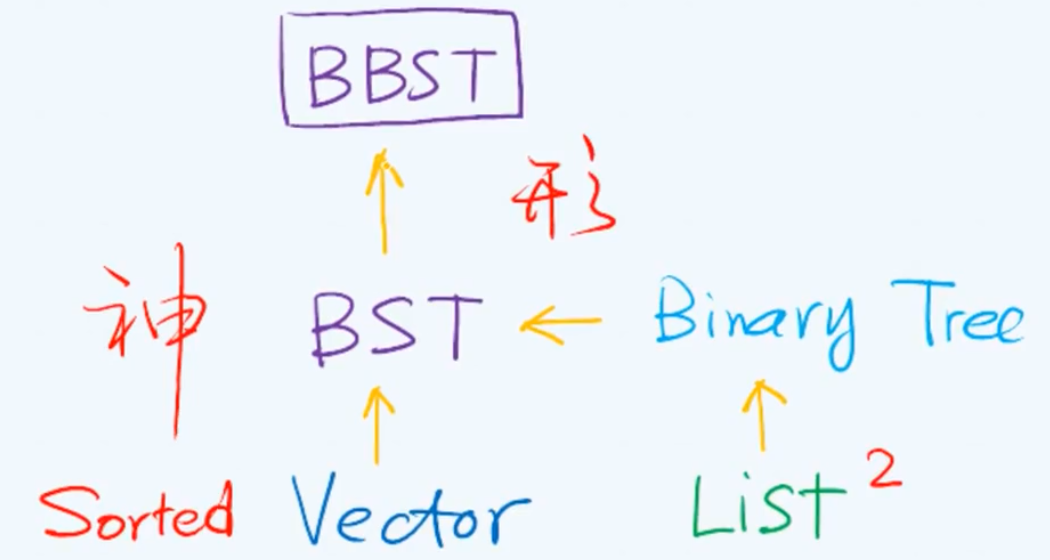 BBST
形
神 BST Binary Tree
Sorted Vector List²